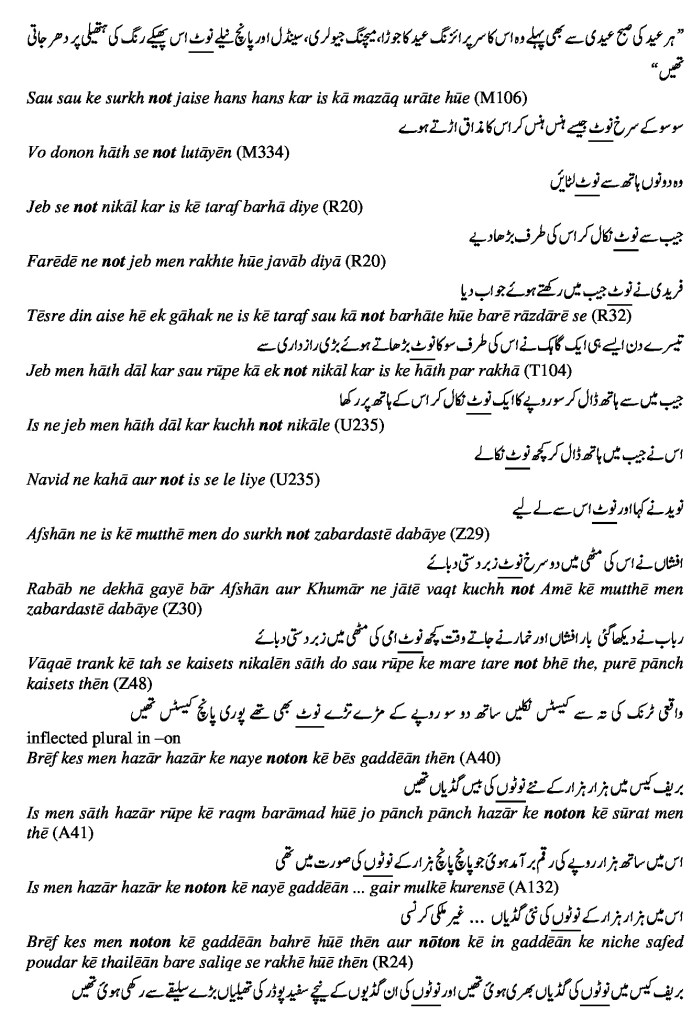 ” ہر عید کی صبح عیدی سے بھی پہلے وہ اس کا سرپرائزنگ عید کا جوڑا، میچنگ جیولری، سینڈل اور پانچ نیلے نوٹ اس پھیکے رنگ کی ہتھیلی پر دھر جاتی
تھیں“
Sau sau ke surkh not jaise hans hans kar is kā mazāq urāte hūe (M106)
سو سو کے سرخ نوٹ جیسے ہنس ہنس کر اس کا مذاق اڑتے ہوے
Vo donon hāth se not lutāyēn (M334)
وہ دونوں ہاتھ سے نوٹ لٹائیں
Jeb se not nikāl kar is kē taraf barhā diye (R20)
جیب سے نوٹ نکال کر اس کی طرف بڑھا دیے
Farēdē ne not jeb men rakhte hūe javāb diyā (R20)
فریدی نے نوٹ جیب میں رکھتے ہوئے جواب دیا
Tēsre din aise hē ek gāhak ne is kē taraf sau kā not barhāte hūe barē rāzdārē se (R32)
تیسرے دن ایسے ہی ایک گاہک نے اس کی طرف سو کا نوٹ بڑھاتے ہوئے بڑی رازداری سے
Jeb men hāth dāl kar sau rūpe kā ek not nikāl kar is ke hāth par rakhā (T104)
جیب میں سے ہاتھ ڈال کر سو روپے کا ایک نوٹ نکال کر اس کے ہاتھ پر رکھا
Is ne jeb men hāth dāl kar kuchh not nikāle (U235)
اس نے جیب میں ہاتھ ڈال کر کچھ نوٹ نکالے
Navid ne kahā aur not is se le liye (U235)
نوید نے کہا اور نوٹ اس سے لے لیے
Afshān ne is kē mutthē men do surkh not zabardastē dabāye (Z29)
افشاں نے اس کی مٹھی میں دو سرخ نوٹ زبردستی دبائے
Rabāb ne dekhā gayē bār Afshān aur Khumār ne jātē vaqt kuchh not Amē kē mutthē men
zabardastē dabāye (Z30)
رباب نے دیکھا گئی بار افشاں اور خمار نے جاتے وقت کچھ نوٹ امی کی مٹھی میں زبردستی دبائے
Vāqaē trank kē tah se kaisets nikalēn sāth do sau rūpe ke mare tare not bhē the, purē pānch
kaisets thēn (Z48)
واقعی ٹرنک کی تہ سے کیسٹس نکلیں ساتھ دو سو روپے کے مڑے تڑے نوٹ بھی تھے پوری پانچ کیسٹس تھیں
inflected plural in –on
Brēf kes men hazār hazār ke naye noton kē bēs gaddēān thēn (A40)
بریف کیس میں ہزار ہزار کے نئے نوٹوں کی بیس گڈیاں تھیں
Is men sāth hazār rūpe kē raqm barāmad hūē jo pānch pānch hazār ke noton kē sūrat men
thē (A41)
اس میں ساتھ ہزار روپے کی رقم برآمد ہوئ جو پانچ پانچ ہزار کے نوٹوں کی صورت میں تھی
Is men hazār hazār ke noton kē nayē gaddēān ... gair mulkē kurensē (A132)
اس میں ہزار ہزار کے نوٹوں کی نئی گڈیاں ... غیر ملکی کرنسی
Brēf kes men noton kē gaddēān bahrē hūē thēn aur nōton kē in gaddēān ke niche safed
poudar kē thailēān bare saliqe se rakhē hūē thēn (R24)
بریف کیس میں نوٹوں کی گڈیاں بھری ہوئ تھیں اور نوٹوں کی ان گڈیوں کے نیچے سفید پوڈر کی تھیلیاں بڑے سلیقے سے رکھی ہوئ تھیں